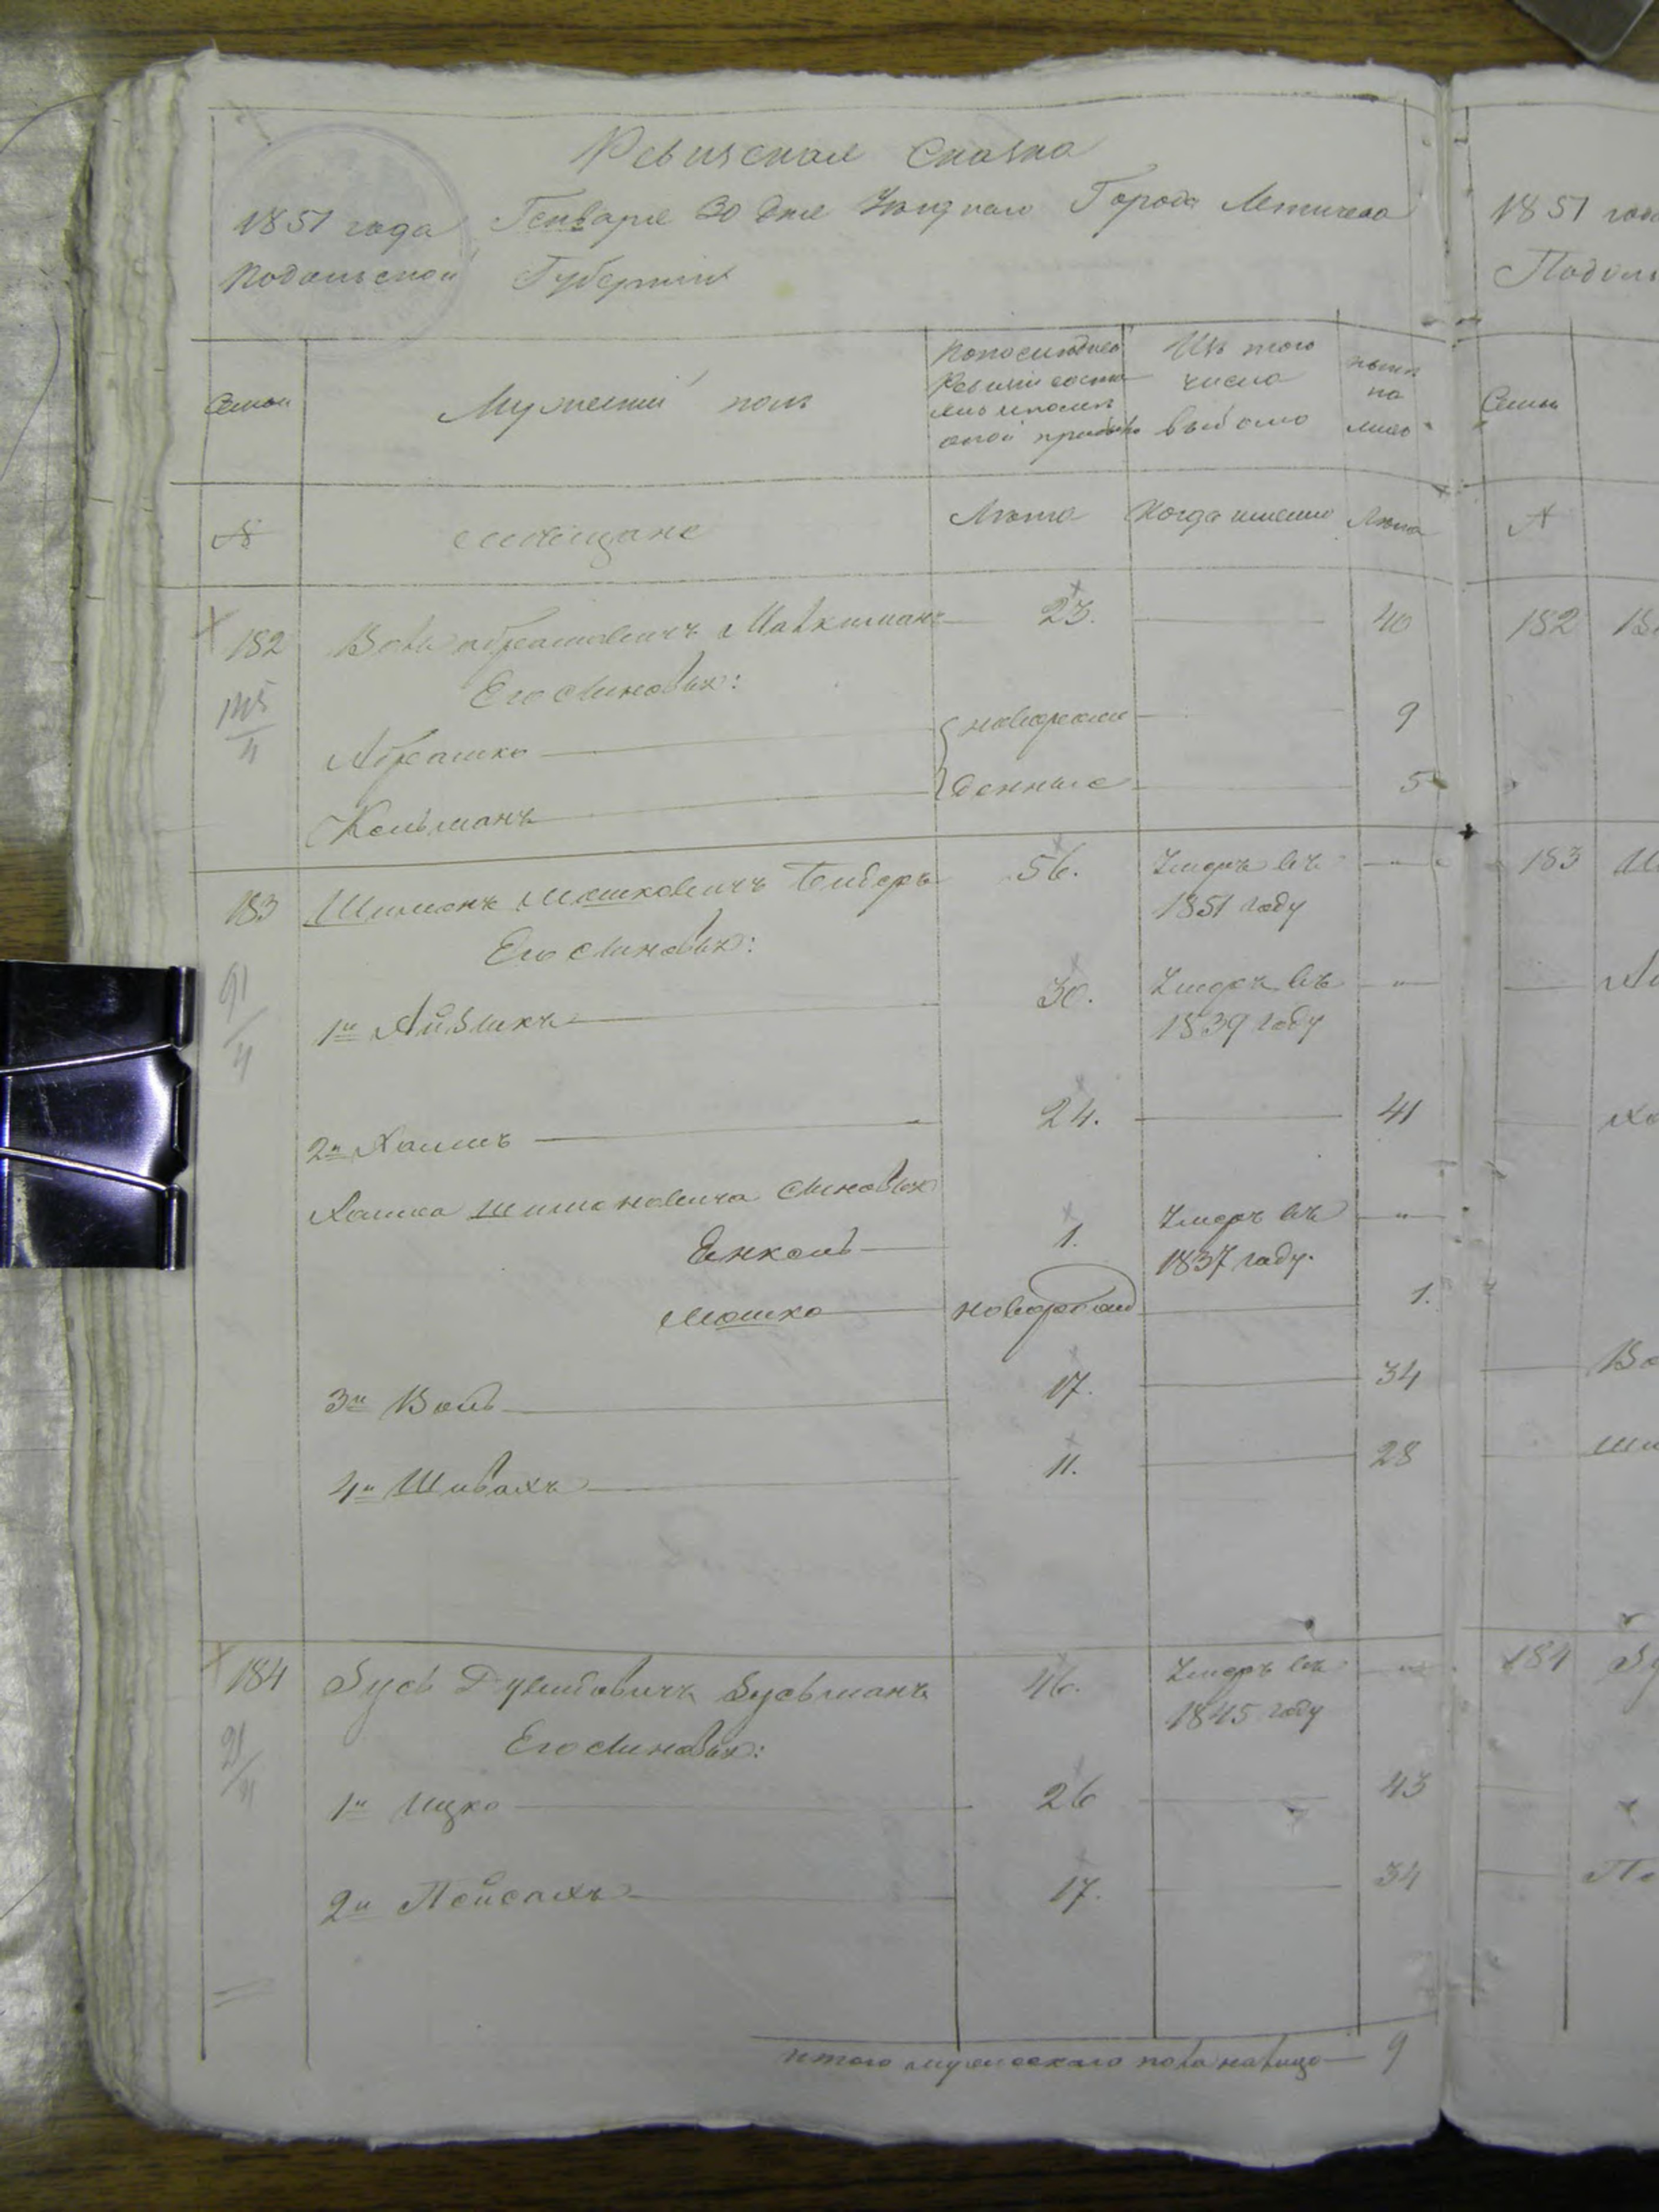 Ревизская Сказка
1851 года Генваря 30 дня Уезднаго Города Летичева
Подольской Губернии
Семьи
Мужеский полъ
По последней Ревизии состо
Изъ того числа выбыло
ныне на лицо
№
мещане
Лета
Когда именно
Лета
182 Воль Абрамовичъ 23. 40
Его сыновья:
Абрашко новорож 9
Кельманъ денные 5
183 Шимонъ Мошковичъ 56. Умеръ въ
1851 году
Его сыновья:
1й Айзикъ 30. Умеръ въ
1839 году
2й Хаимъ 24. 41
Хаима Шимоновича сыновья
Янкель 1. Умеръ въ
1837 году.
Мошко новорожд 1.
3й Воль 17. 34
4й 11. 28
184 Зусь Зусьманъ 46. Умеръ въ
1845 году
Его сыновья:
1й Ицко 26 43
2й Пейсахъ 17. 34
итого мужескаго пола на лицо 9
1851 года
Подоль
Семьи
№
182
183
184